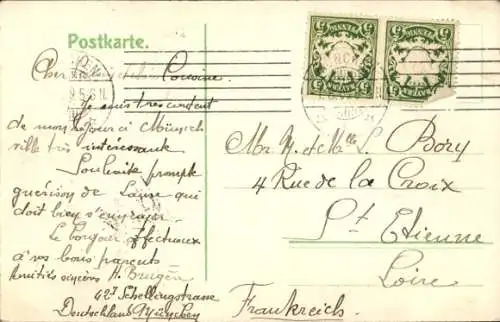 Postkarte.
Cher Cousine
Je suis très content
de mon séjour à Münich
ville très intéressante
Souhaite prompte
guérison de Laure qui
doit bien s'ennuyer.
Le bonjour affectueux
à vos bons parents
Amitiés sincères H. Brugén
42I Schellingstrasse
Deutschland München
Mr M. et Mlle L. Bory
4 Rue de la Croix
St Etienne
Loire
Frankreich.
5 PFENNIG 5
BAYERN
5 PFENNIG 5
BAYERN